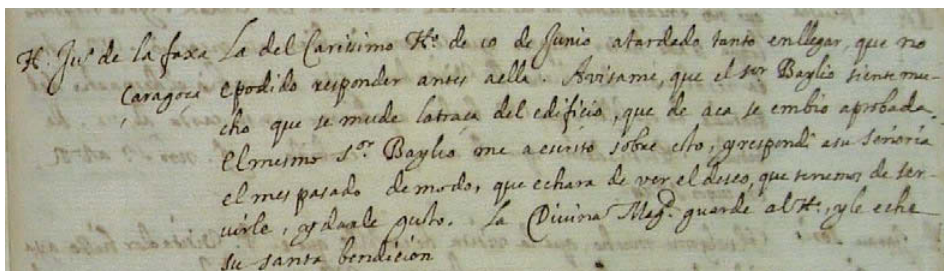 H. Juº de la faxa La del Carissimo Hº de 10 de Junio atardado tanto enllegar, que no
Caragoça epodido responder antes aella. Avisame, que el sor Baylio siente mu-
cho que se mude latraça del edificio, que de aca se embio aprobada.
Elmesmo sor Baylio me aescrito sobre esto, yrespondi asu señoria
elmes pasado demodo, que echara de ver el deseo, que tenemos de ser-
uirle, ydarle gusto. La Divina Magd. guarde alH. yle eche
su santa bendicion